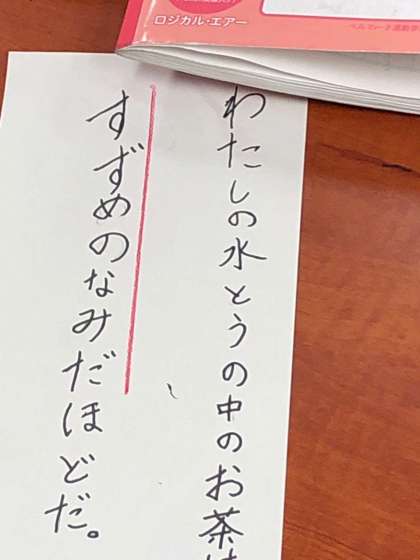 ロジカル・エアー
わたしの水とうの中のお茶は
すずめのなみだほどだ。